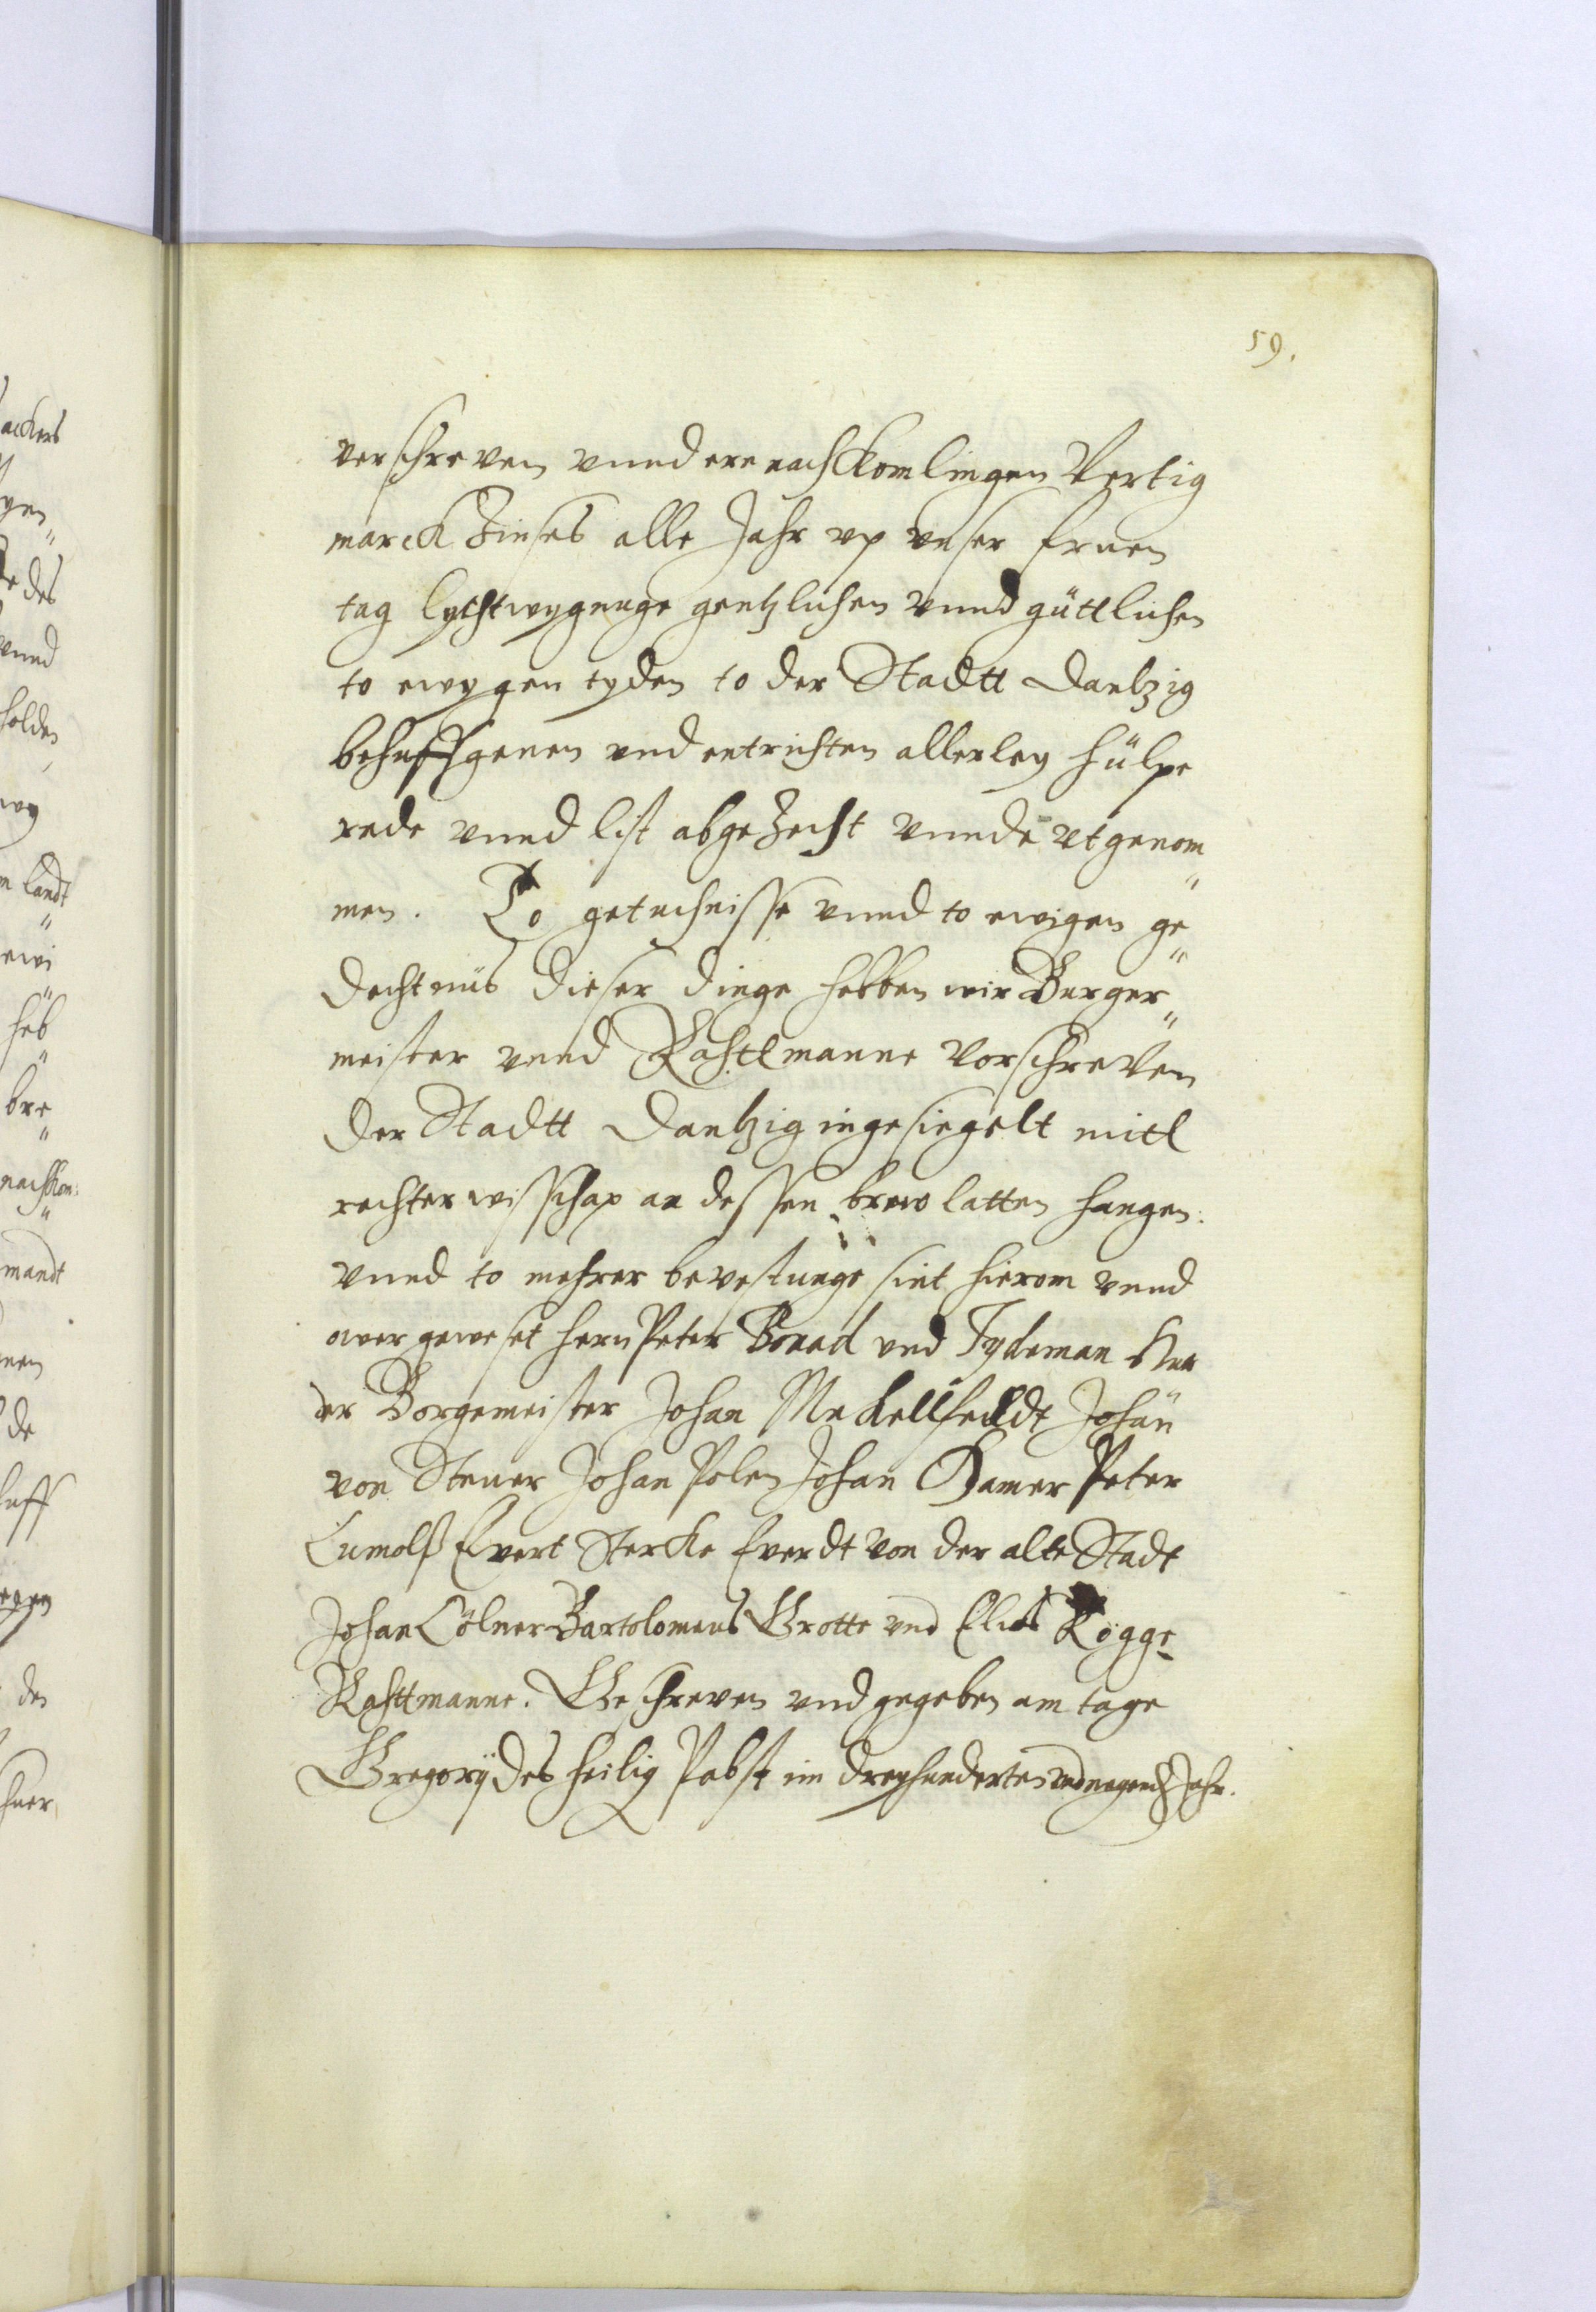 59.
verschreven vnnd ere nachkomlingen Vertig
marck Zinses alle Jahr vp vnser fruen
tag lychtwygenge gentzlichen vnnd güttlichen
to ewygen tyden to der Stadtt Dantzig
behuff genen vnd entrichten allerley hülpe
rede vnnd list abgezecht vnnde vtgenom„
men. To getuchnisse vnnd to ewigen ge„
dechtnüs dieser dinge hebben wir Burger„
meister vnnd Rahttmanne vorschreven
der Stadtt Dantzig ingesiegelt mitt
rechter wisschap an dessen brew latten hangen.
vnnd to mehrer bevestunge sint hierom vnnd
over geweset hern Peter Borad vnd Tydeman Hux
er Borgemeister Johan Mekellfeldt Johan
von Stener Johan Polen Johan Hamer Peter
Cumolß Evert Stercke Everdt von der alte Stadt
Johan Cölner Bartolomeus Grotte vnd Elias Rogge
Rahttmanne. Geschreven vnd gegeben am tage
Gregorÿ des heilig Pabst im dreyhunderten vnd Jahr.